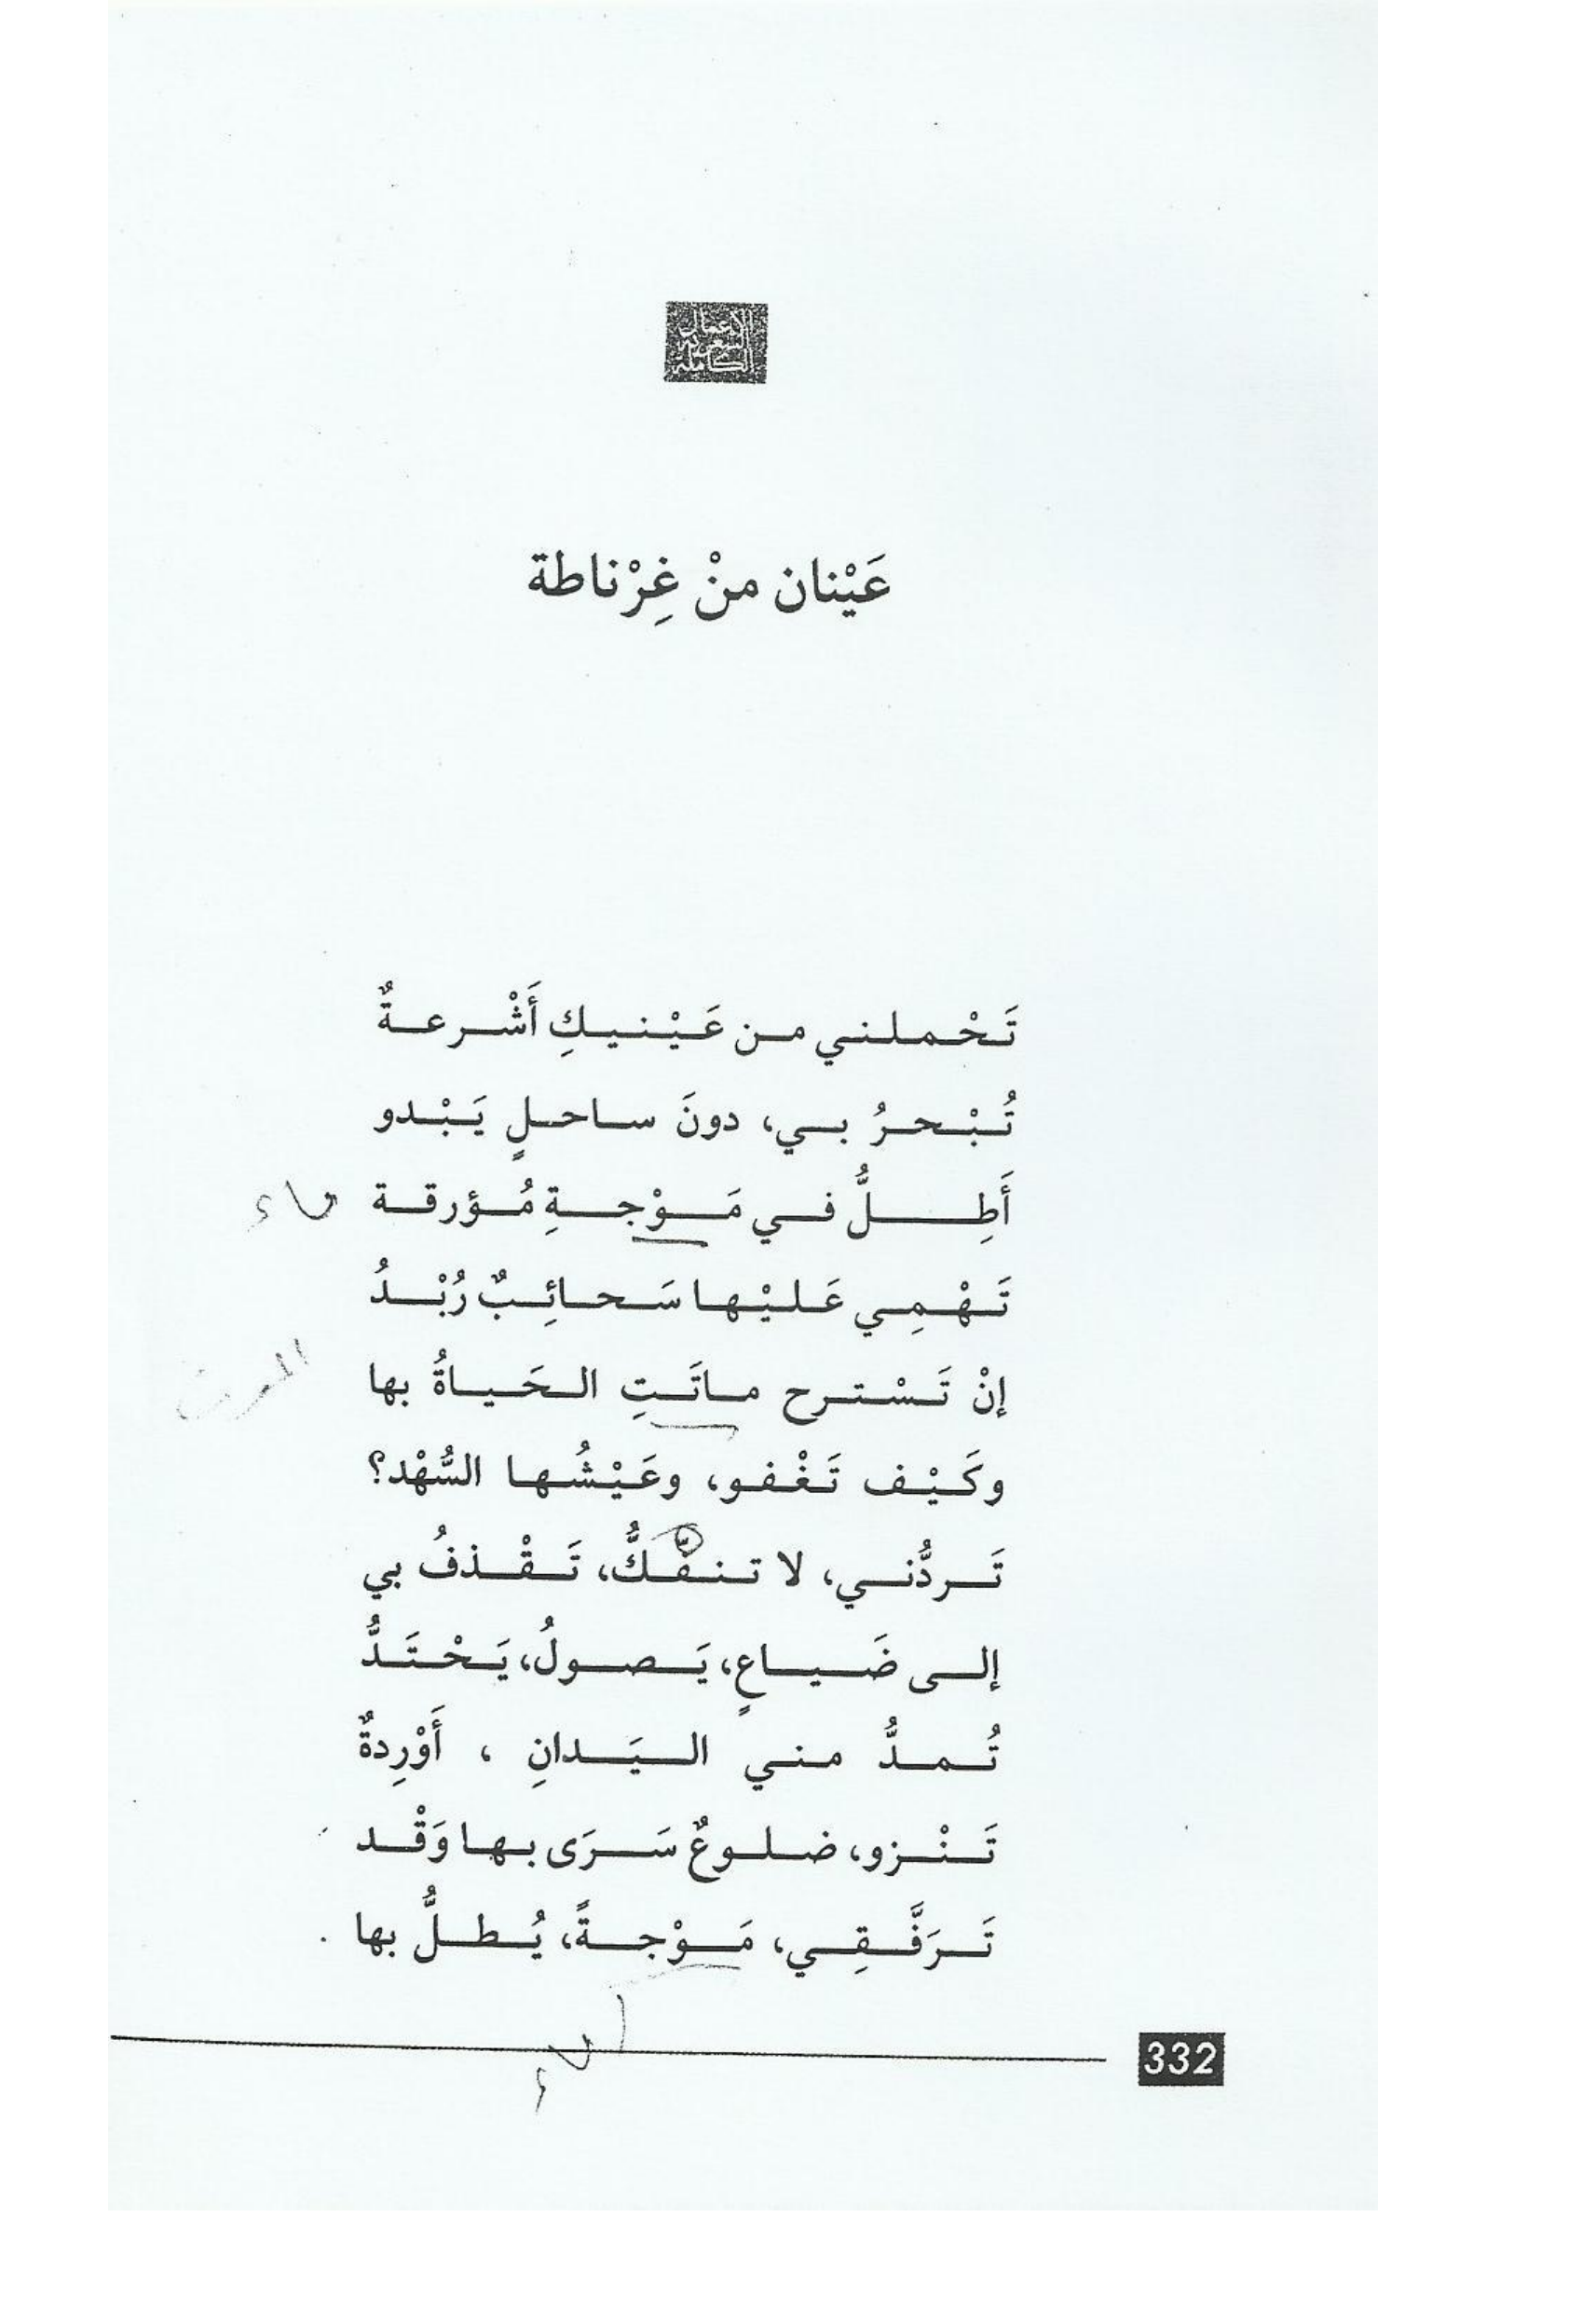 الأعمال
الشعرية
الكاملة
عَيْنان منْ غِرْناطة
تَحْملني من عَيْنيكِ أَشْرعةٌ
تُبْحرُ بي، دونَ ساحلٍ يَبْدو
أَطِلُّ في مَوْجةِ مُؤرقة
ماء
تَهْمِي عَليْها سَحائِبٌ رُبْدُ
إنْ تَسْترح ماتَتِ الحَياةُ بها
الموت
وكَيْف تَغْفو، وعَيْشُها السُّهْد؟
تَردُّني، لا تنفّكُّ، تَقْذفُ بي
إلى ضَياعٍ، يَصولُ، يَحْتَدُّ
تُمدُّ مني اليَدانِ ، أَوْرِدةٌ
تَنْزو، ضلوعٌ سَرَى بها وَقْد
تَرَفَّقِي، مَوْجةً، يُطلُّ بها .
332